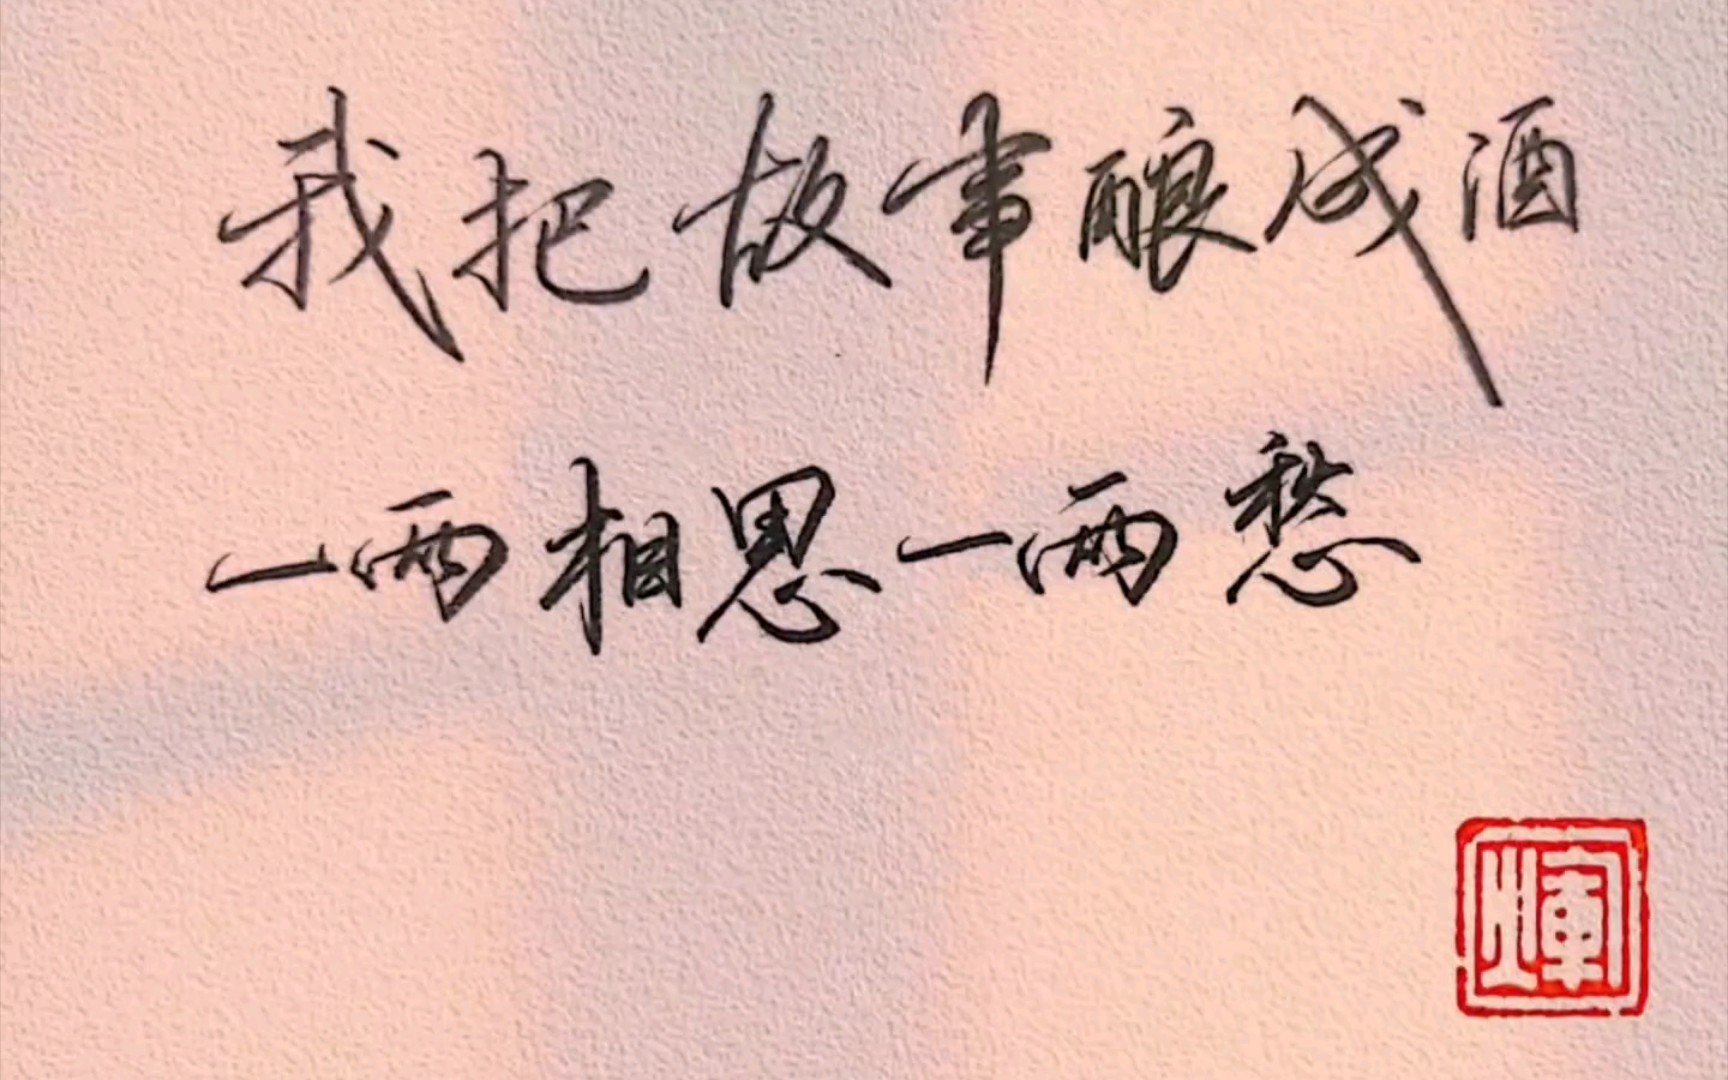 我把故事酿成酒
一两相思一两愁
輝